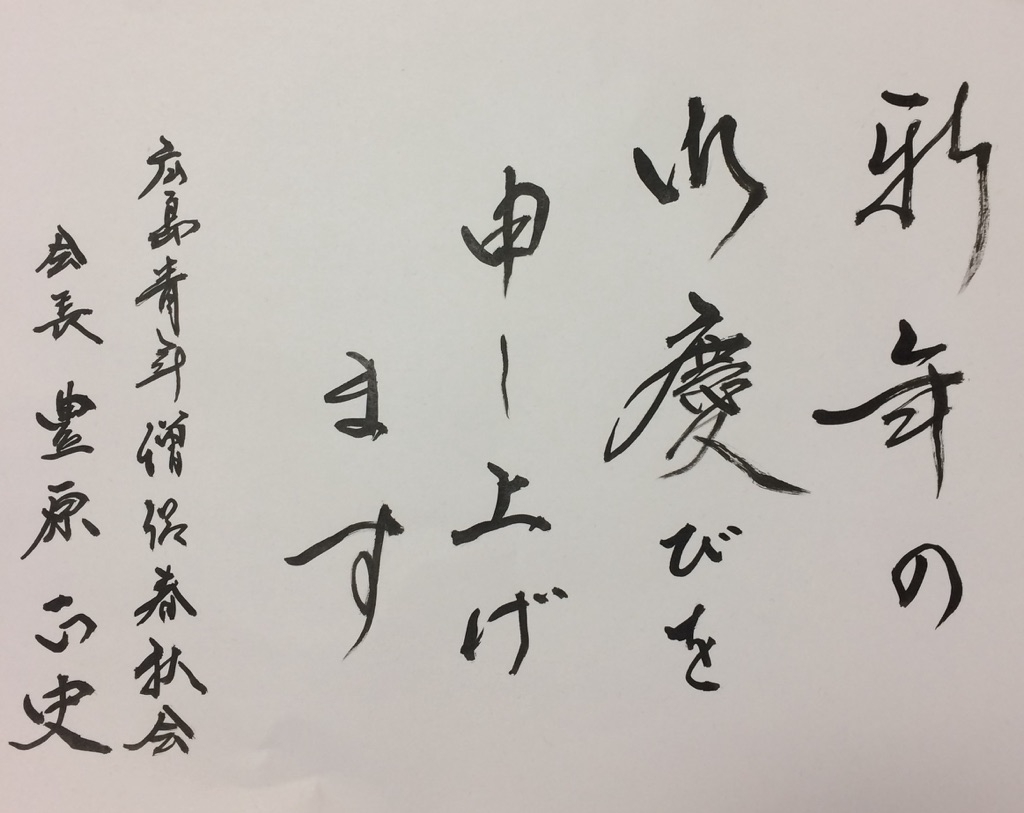 新年の
御慶びを
申し上げ
ます
広島青年僧侶春秋会
会長 豊原正史